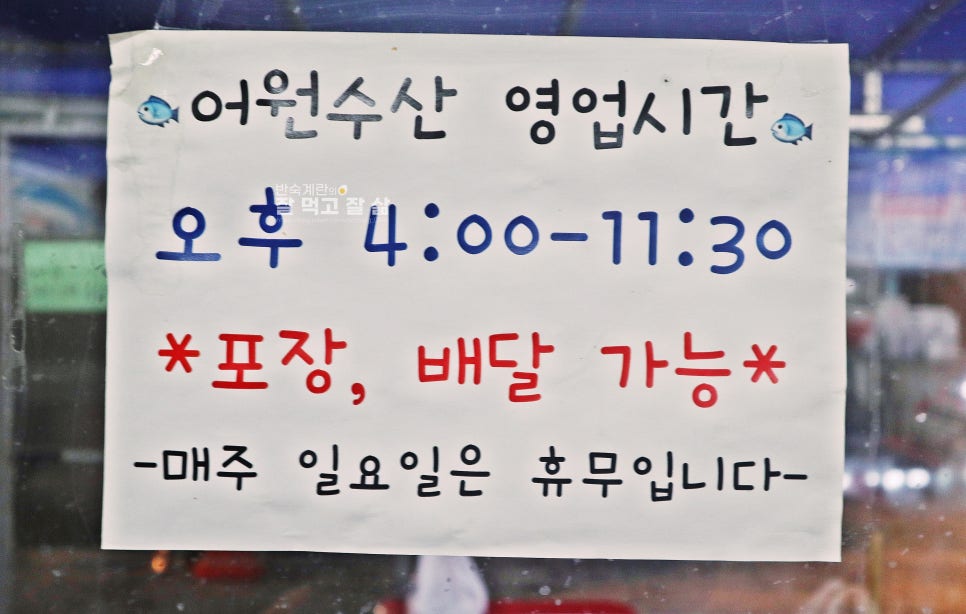 🐟어원수산 영업시간🐟
반숙계란의
잘 먹고 잘 삶
오후 4:00-11:30
*포장, 배달 가능*
-매주 일요일은 휴무입니다-